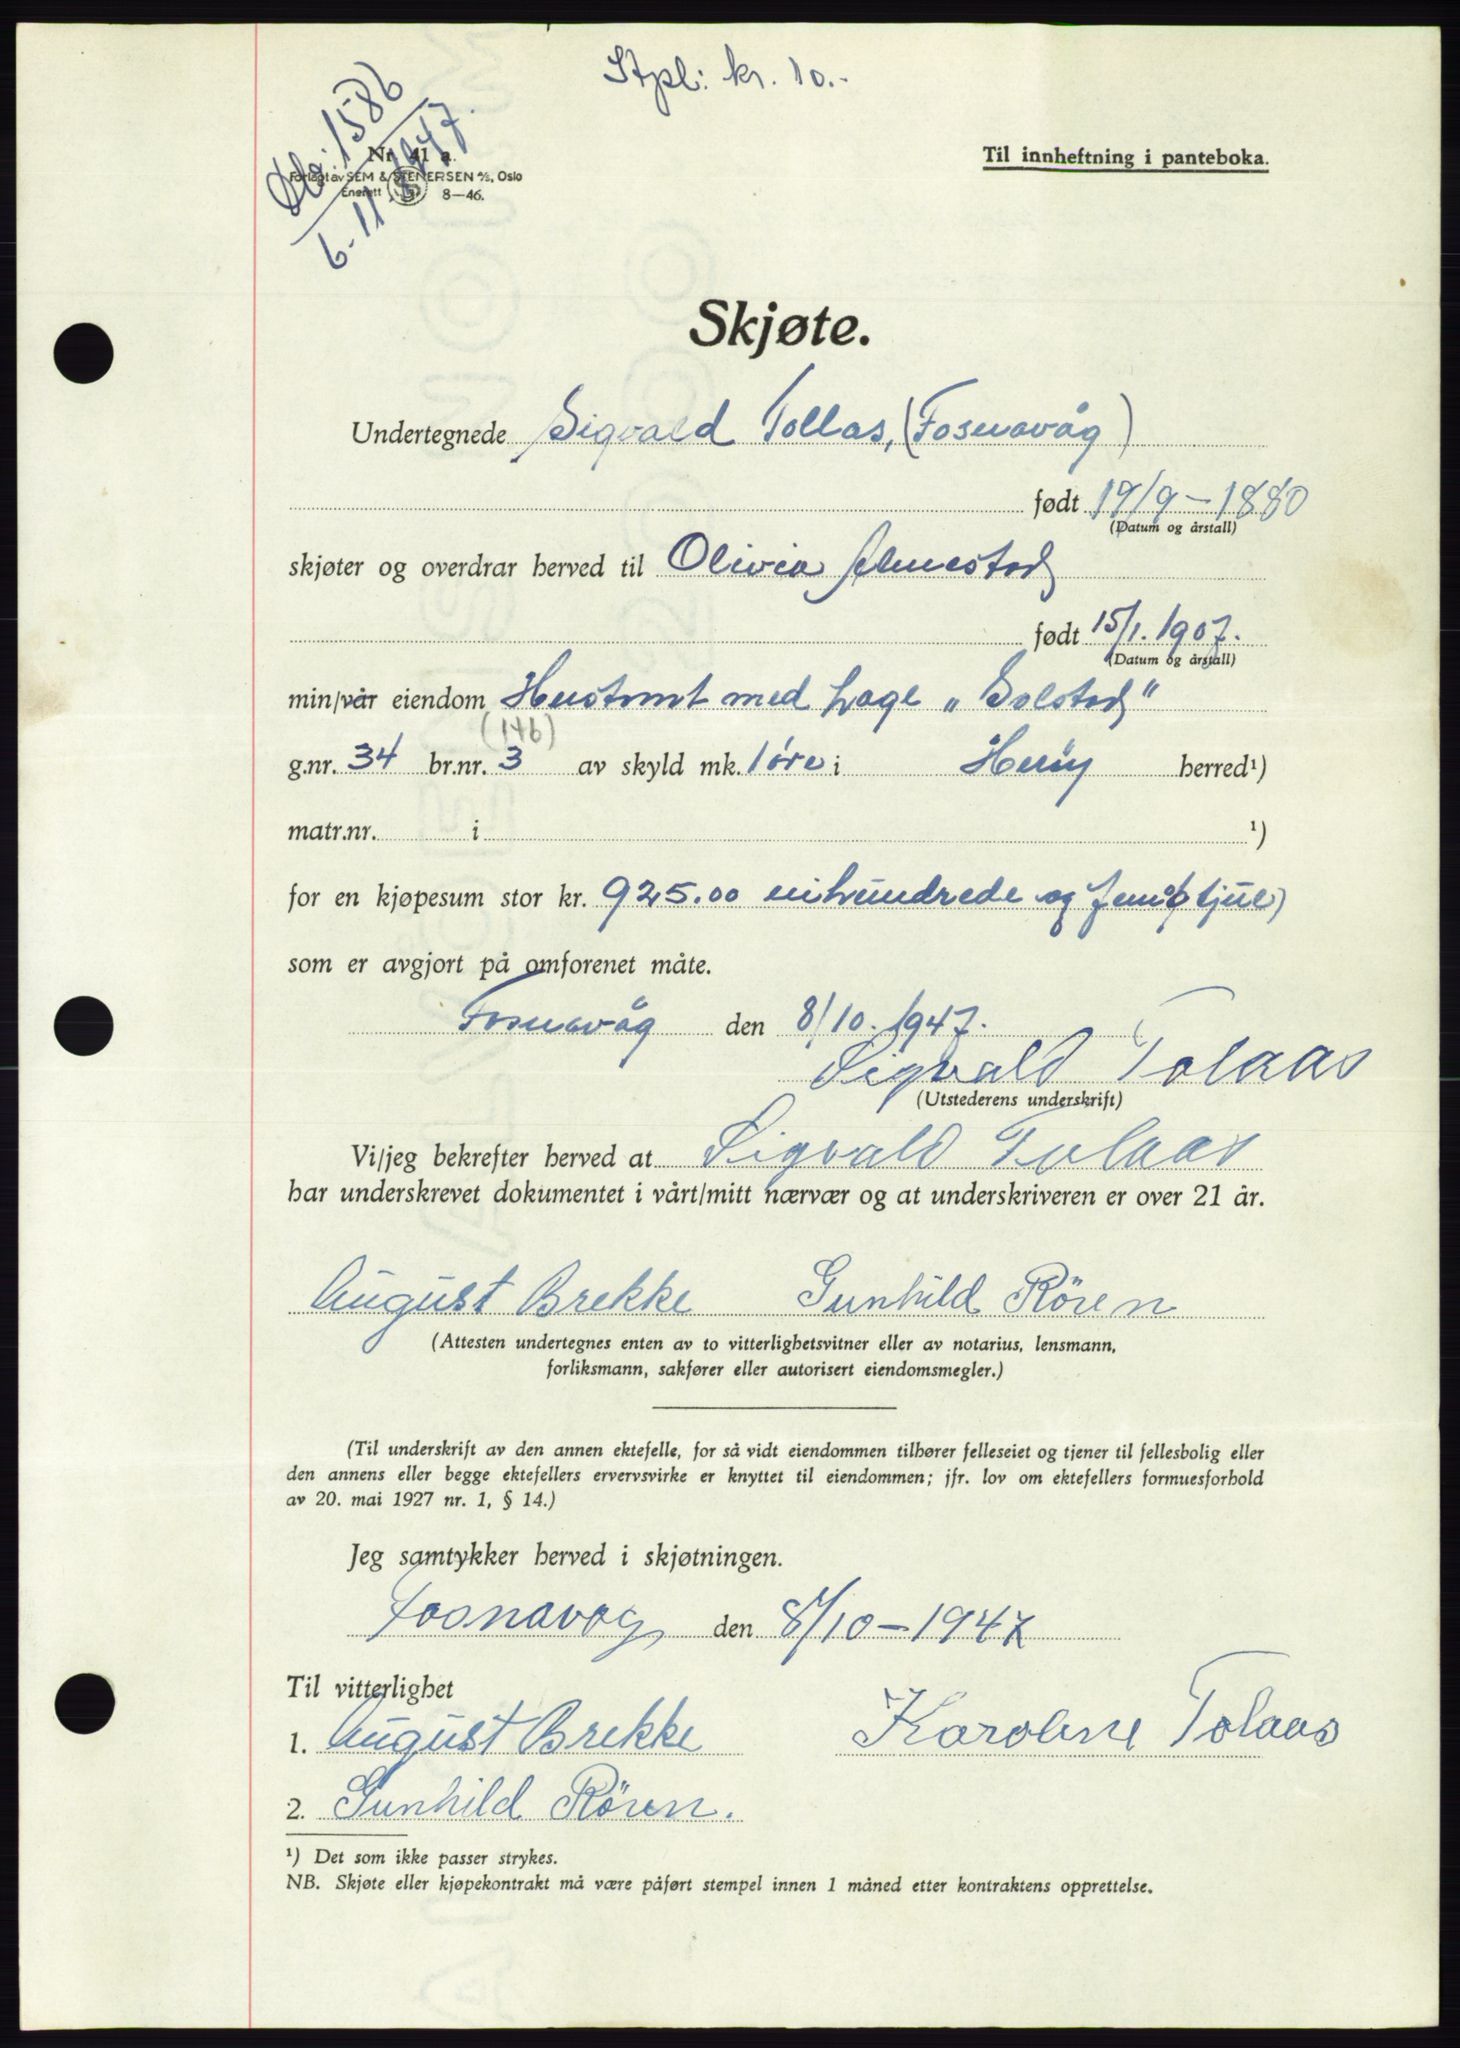 Stpl: kr. 10.-
Db: 1586
6-11 1947.
Nr. 41 a.
Forlagt av SEM & STENERSEN A/S, Oslo
Enerett 8—46.
Til innheftning i panteboka.
Skjøte.
Undertegnede Sigvald Tollas, (Fosnavåg)
født 19/9 - 1880
(Datum og årstall)
skjøter og overdrar herved til Olivia Almestad
født 15/1. 1907.
(Datum og årstall)
min/vår eiendom Hustomt med hage „Solstad"
(146)
g.nr. 34 br.nr. 3 av skyld mk. 1 øre i Herøy herred¹)
matr.nr. i ¹)
for en kjøpesum stor kr. 925.00 nihundrede og femogtjue)
som er avgjort på omforenet måte.
Fosnavåg den 8/10. 1947.
Sigvald Tolaas
(Utstederens underskrift)
Vi/jeg bekrefter herved at Sigvald Tolaas
har underskrevet dokumentet i vårt/mitt nærvær og at underskriveren er over 21 år.
August Brekke Gunhild Røren
(Attesten undertegnes enten av to vitterlighetsvitner eller av notarius, lensmann,
forliksmann, sakfører eller autorisert eiendomsmegler.)
(Til underskrift av den annen ektefelle, for så vidt eiendommen tilhører felleseiet og tjener til fellesbolig eller
den annens eller begge ektefellers ervervsvirke er knyttet til eiendommen; jfr. lov om ektefellers formuesforhold
av 20. mai 1927 nr. 1, § 14.)
Jeg samtykker herved i skjøtningen.
Fosnavåg den 8/10-1947
Til vitterlighet
1. August Brekke Karoline Tolaas
2. Gunhild Røren.
¹) Det som ikke passer strykes.
NB. Skjøte eller kjøpekontrakt må være påført stempel innen 1 måned etter kontraktens opprettelse.